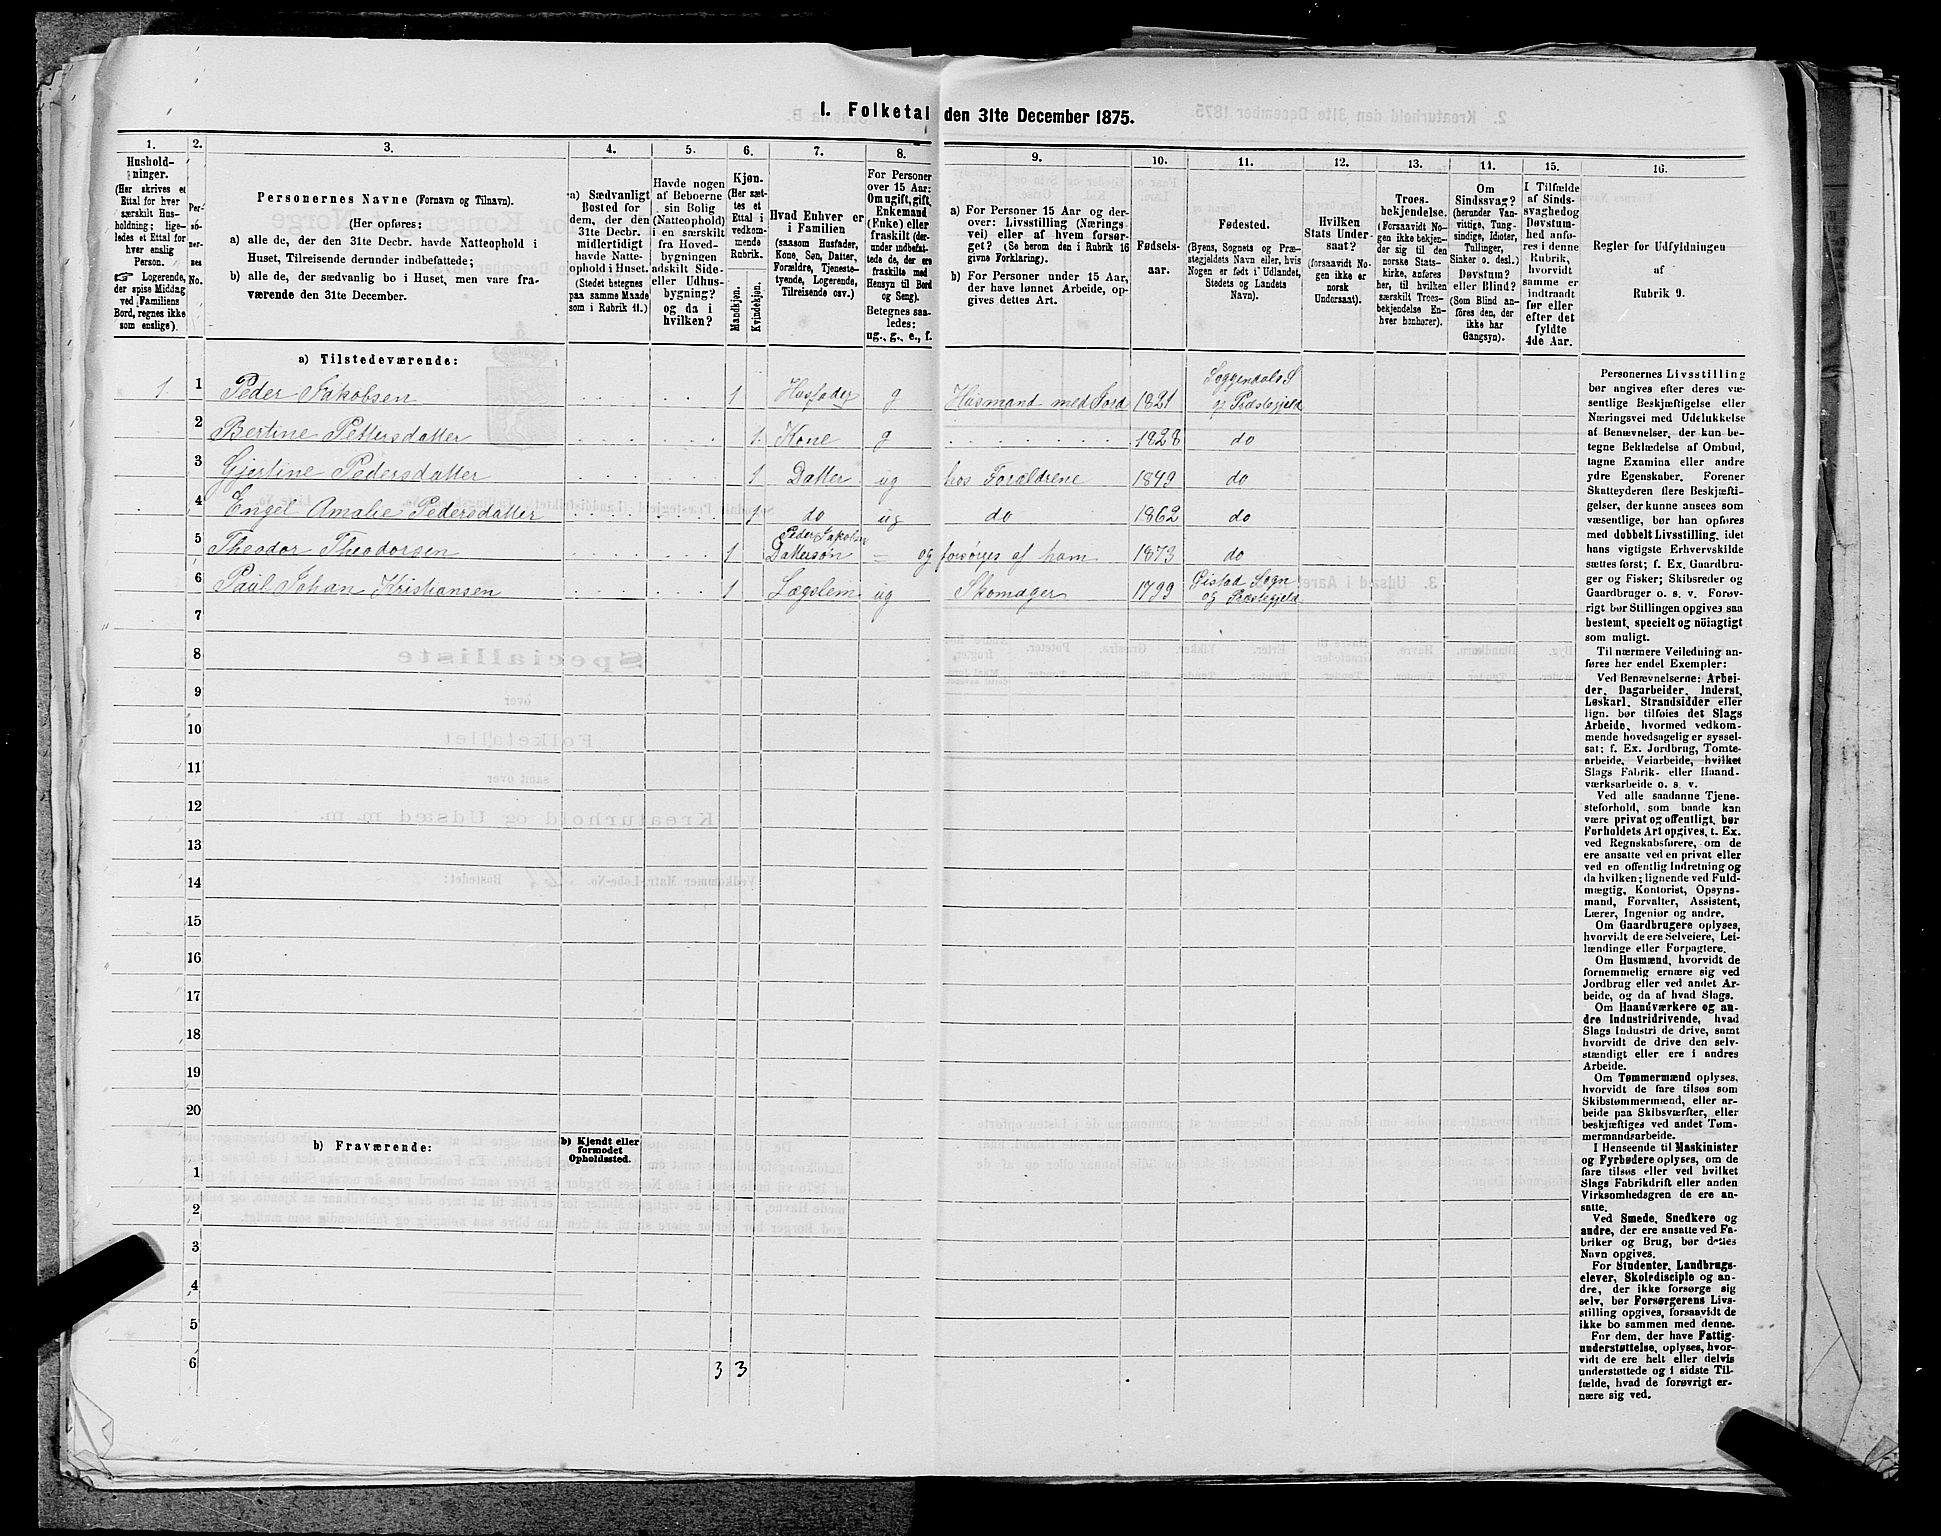 I. Folketal den 31te December 1875.
1.
2.
3.
4.
5.
6.
7.
8.
9.
10.
11.
12.
13.
14.
15.
16.
Hushold-
ninger.
(Her skrives et
Ettal for hver
særskilt Hus-
holdning; lige-
ledes et Ettal for
hver enslig
Person.
☞ Logerende,
der spise Middag
ved Familiens
Bord, regnes ikke
som enslige).
Per-
so-
ner-
nes
No.
Personernes Navne (Fornavn og Tilnavn).
(Her opføres:
a) alle de, der den 31te Decbr. havde Natteophold i
Huset, Tilreisende derunder indbefattede;
b) alle de, der sædvanlig bo i Huset, men vare fra-
værende den 31te December.
a) Sædvanligt
Bosted for
dem, der den
31te Decbr.
midlertidigt
havde Natte-
ophold i Huset.
(Stedet betegnes
paa samme Maade
som i Rubrik 11.)
Havde nogen
af Beboerne
sin Bolig
(Natteophold)
i en særskilt
fra Hoved-
bygningen
adskilt Side-
eller Udhus-
bygning?
og da i
hvilken?
Kjøn.
(Her sæt-
tes et
Ettal i
vedkom-
mende
Rubrik.
Mandkjøn.
Kvindekjøn.
Hvad Enhver er
i Familien
(saasom Husfader,
Kone, Søn, Datter,
Forældre, Tjeneste-
tyende, Logerende,
Tilreisende osv.)
For Personer
over 15 Aar:
Om ugift, gift,
Enkemand
(Enke) eller
fraskilt (der-
under indbefat-
tede de, der ere
fraskilte med
Hensyn til Bord
og Seng).
Betegnes saa-
ledes:
ug., g., e., f.
a) For Personer 15 Aar og der-
over: Livsstilling (Nærings-
vei) eller af hvem forsør-
get? (Se herom den i Rubrik 16
givne Forklaring).
b) For Personer under 15 Aar,
der have lønnet Arbeide, op-
gives dettes Art.
Fødsels-
aar.
Fødested.
(Byens, Sognets og Præ-
stegjeldets Navn eller, hvis
Nogen er født i Udlandet,
Stedets og Landets
Navn).
Hvilken
Stats Under-
saat?
(forsaavidt No-
gen ikke er
norsk
Undersaat).
Troes-
bekjendelse.
(Forsaavidt No-
gen ikke bekjen-
der sig til den
norske Stats-
kirke, anføres
her, til hvilken
særskilt Troes-
bekjendelse En-
hver henhører).
Om
Sindssvag?
(herunder Van-
vittige, Tung-
sindige, Idioter,
Tullinger,
Sinker o. desl.)
Døvstum?
eller Blind?
(Som Blind an-
føres den, der
ikke har
Gangsyn).
I Tilfælde
af Sinds-
svaghed og
Døvstum-
hed anfø-
res i denne
Rubrik,
hvorvidt
samme er
indtraadt
før eller
efter det
fyldte
4de Aar.
Regler for Udfyldningen
af
Rubrik 9.
a) Tilstedeværende:
1 1 Peder Jakobsen 1 Husfader g Husmand med Jord 1821 Soggendals S og Præstegjeld
2 Bertine Pettersdatter 1 Kone g 1828 do
3 Gjertine Pedersdatter 1 Datter ug hos Forældrene 1849 do
4 Engel Amalie Pedersdatter 1 do ug do 1862 do
5 Theodor Theodorsen 1 Peder Jakobs Dattersøn – og forsørges af ham 1873 do
6 Paul Johan Kristiansen 1 Lægslem ug Skomager 1799 Gistad Sogn og Præstegjeld
7
8
9
10
11
12
13
14
15
16
17
18
19
20
b) Fraværende:
b) Kjendt eller
formodet
Opholdssted.
1
2
3
4
5
6
3 3
Personernes Livsstilling
bør angives efter deres væ-
sentlige Beskjæftigelse eller
Næringsvei med Udelukkelse
af Benævnelser, der kun be-
tegne Beklædelse af Ombud,
tagne Examina eller andre
ydre Egenskaber. Forener
Skatteyderen flere Beskjæfti-
gelser, der kunne ansees som
væsentlige, bør han opføres
med dobbelt Livsstilling, idet
hans vigtigste Erhvervskilde
sættes først; f. Ex. Gaardbru-
ger og Fisker; Skibsreder og
Gaardbruger o. s. v. Forøv-
rigt bør Stillingen opgives saa
bestemt, specielt og nöiagtigt
som muligt.
Til nærmere Veiledning an-
føres her endel Exempler:
Ved Benævnelserne: Arbei-
der, Dagarbeider, Inderst,
Løskarl, Strandsidder eller
lign. bør tilføies det Slags
Arbeide, hvormed vedkom-
mende hovedsagelig er syssel-
sat; f. Ex. Jordbrug, Tomte-
arbeide, Veiarbeide, hvilket
Slags Fabrik- eller Haand-
værksarbeide o. s. v.
Ved alle saadanne Tjene-
steforhold, som baade kan
være privat og offentligt, bør
Forholdets Art opgives, t. Ex.
ved Regnskabsførere, om de
ere ansatte ved en privat eller
ved en offentlig Indretning og
da hvilken; lignende ved Fuld-
mægtig, Kontorist, Opsyns-
mand, Forvalter, Assistent,
Lærer, Ingeniør og andre.
Om Gaardbrugere oplyses,
hvorvidt de ere Selveiere, Lei-
lændinge eller Forpagtere.
Om Husmænd, hvorvidt de
fornemmelig ernære sig ved
Jordbrug eller ved andet Ar-
beide, og da af hvad Slags.
Om Haandværkere og an-
dre Industridrivende, hvad
Slags Industri de drive, samt
hvorvidt de drive den selv-
stændigt eller ere i andres
Arbeide.
Om Tømmermænd oplyses,
hvorvidt de fare tilsøs som
Skibstømmermænd, eller ar-
beide paa Skibsværfter, eller
beskjæftiges ved andet Tøm-
mermandsarbeide.
I Henseende til Maskinister
og Fyrbødere oplyses, om de
fare tilsøs eller ved hvilket
Slags Fabrikdrift eller anden
Virksomhedsgren de ere an-
satte.
Ved Smede, Snedkere og
andre, der ere ansatte ved Fa-
briker og Brug, bør dettes
Navn opgives.
For Studenter, Landbrugs-
elever, Skoledisciple og an-
dre, der ikke forsørge sig
selv, bør Forsørgerens Livs-
stilling opgives, forsaavidt de
ikke bo sammen med denne.
For dem, der have Fattig-
understøttelse, oplyses, hvor-
vidt de ere helt eller delvis
understøttede og i sidste Til-
fælde, hvad de forøvrigt er-
nære sig ved.